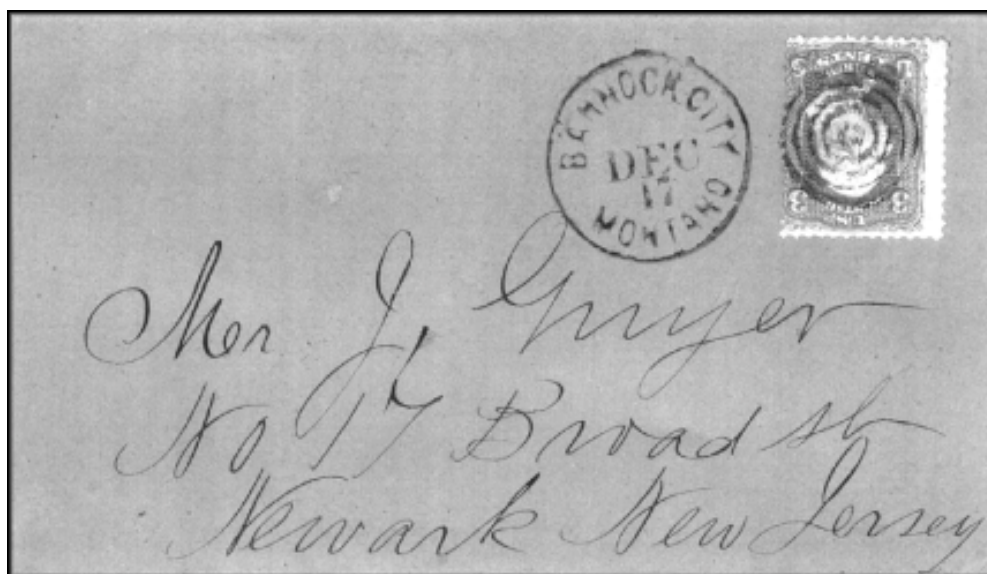 BANNOCK CITY
DEC
17
MONTANA
Mr J. Guyer
No 17 Broad st
Newark New Jersey